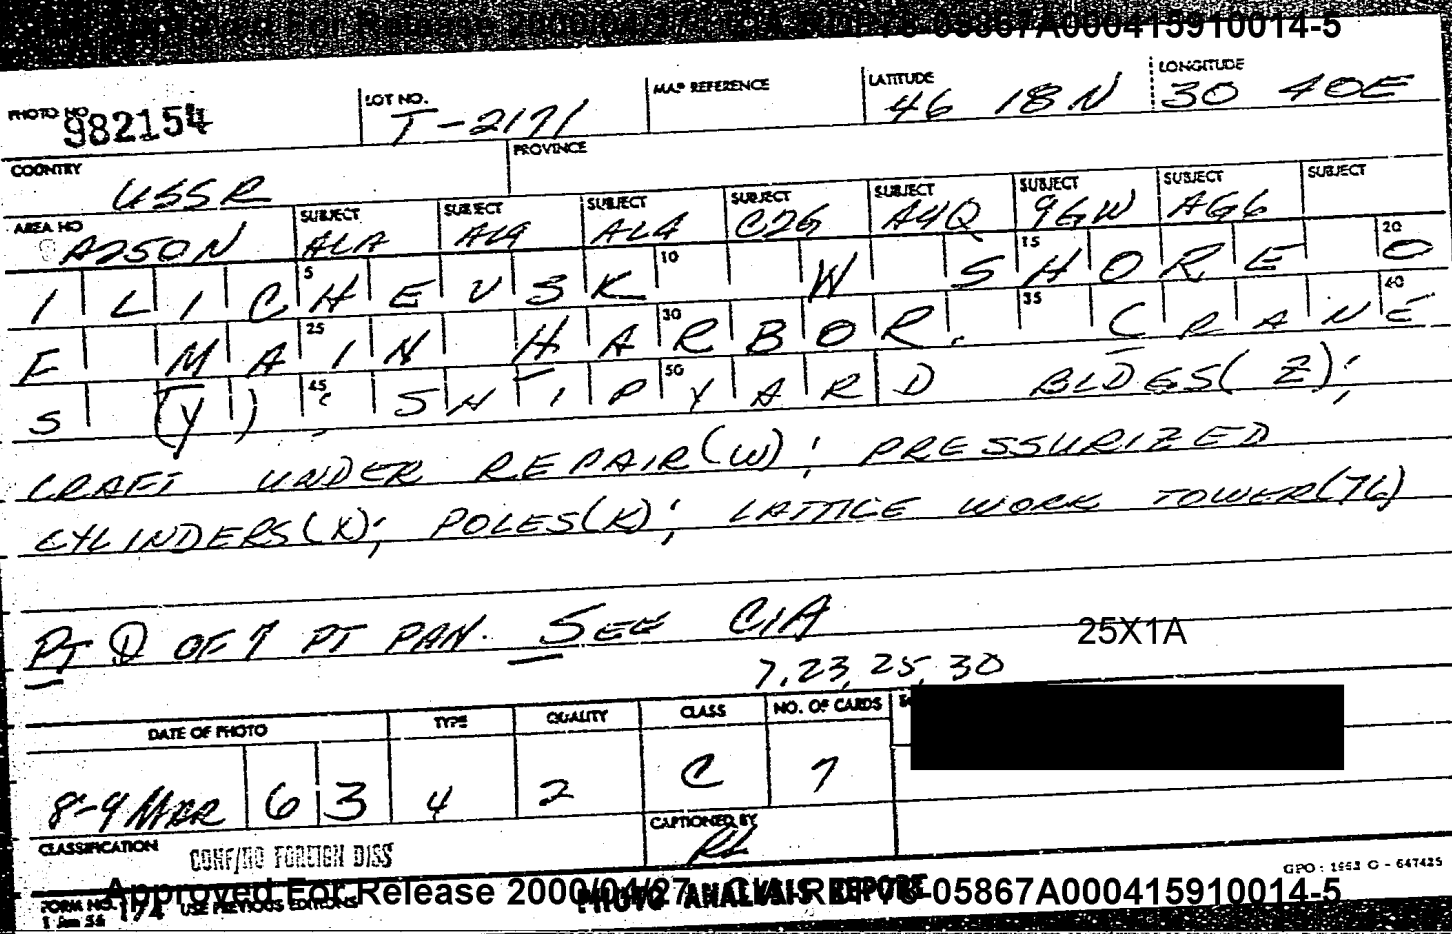 Approved For Release 2000/04/27 : CIA-RDP78-05867A000415910014-5
PHOTO NO. 982154 LOT NO. T-2171 MAP REFERENCE LATITUDE 46 18 N LONGITUDE 30 40E
COUNTRY USSR PROVINCE
AREA NO A250N SUBJECT ALA SUBJECT SUBJECT ALA SUBJECT C26 SUBJECT A4Q SUBJECT 9GW SUBJECT AG6 SUBJECT
5 10 15 20
ILICHEVSK W SHORE O
25 30 35 40
F MAIN HARBOR. CRANE
45 50
S (Y); SHIPYARD BLDGS(Z);
CRAFT UNDER REPAIR(W); PRESSURIZED
CYLINDERS(X); POLES(K); LATTICE WORK TOWER(TL)
PT OF 7 PT PAN. SEE CIA
25X1A
7,23,25,30
DATE OF PHOTO TYPE QUALITY CLASS NO. OF CARDS
8-9 MAR 63 4 2 C 7
CLASSIFICATION CONF/NO FOREIGN DISS CAPTIONED BY RL
GPO : 1963 O - 647425
FORM NO. 1 Jun 56 174 USE PREVIOUS EDITIONS PHOTO ANALYSIS REPORT
Approved For Release 2000/04/27 : CIA-RDP78-05867A000415910014-5